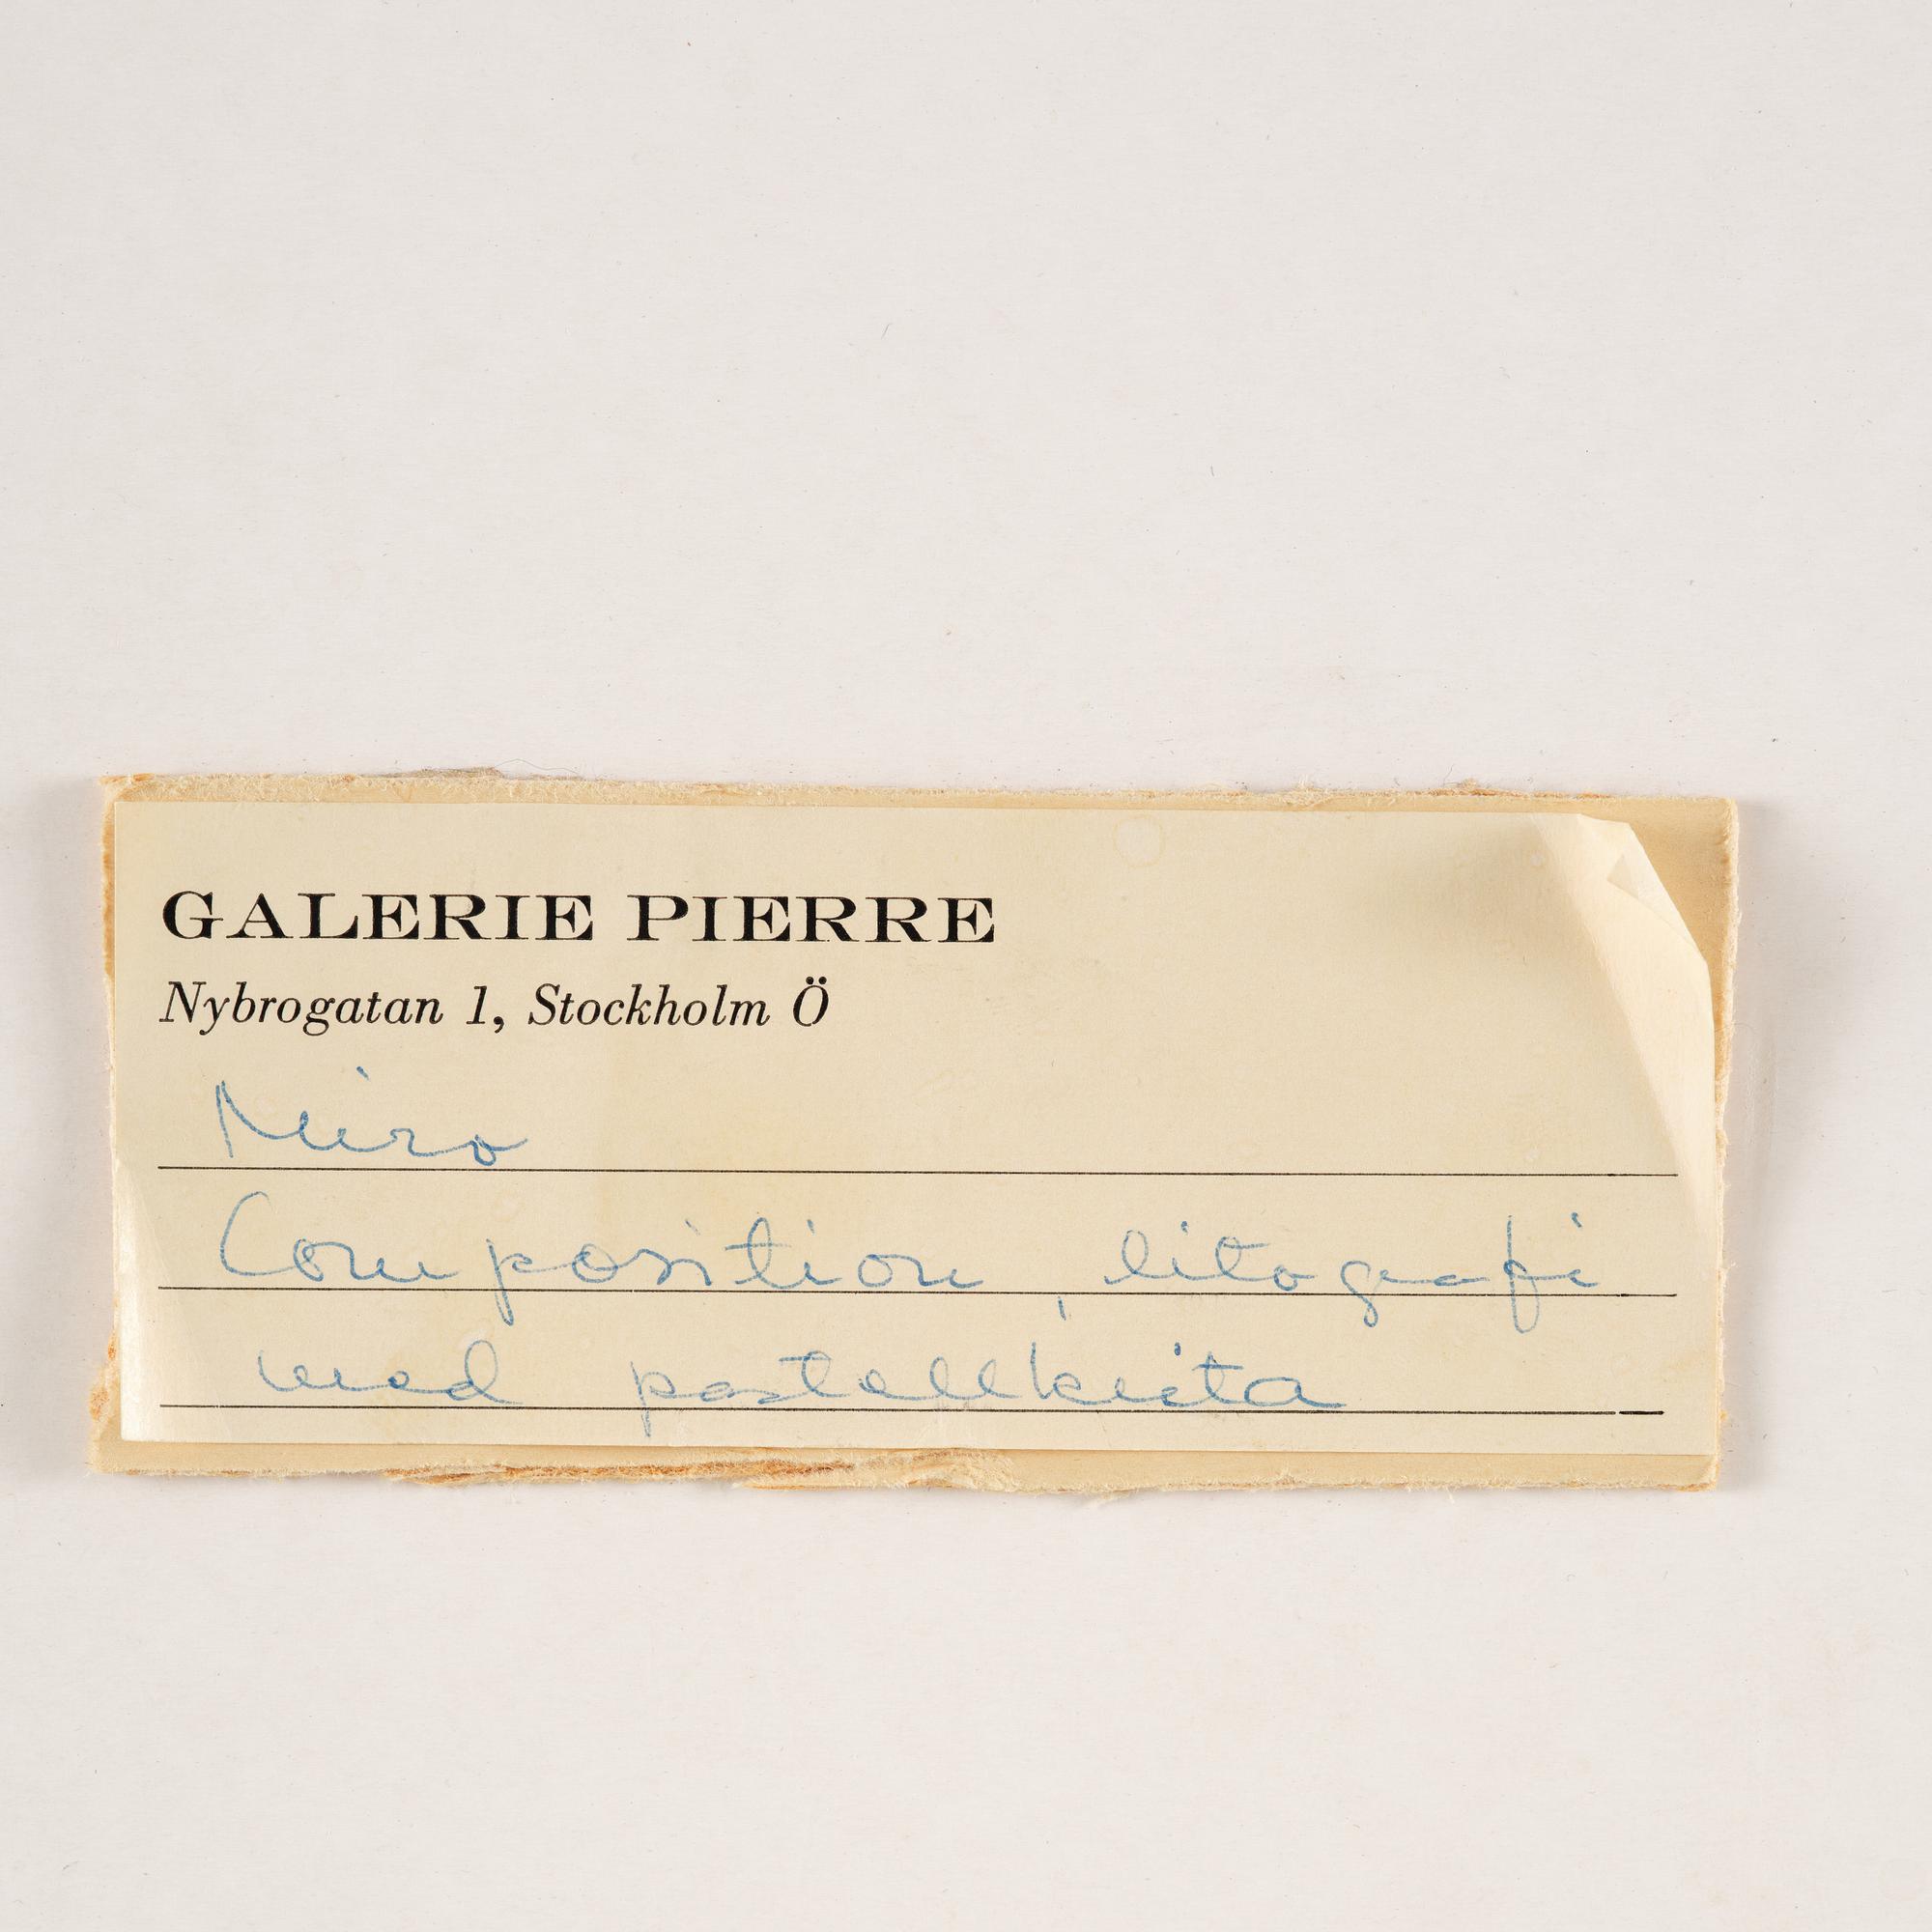 GALERIE PIERRE
Nybrogatan 1, Stockholm Ö
Miro
Composition, litografi
med pastellkrita